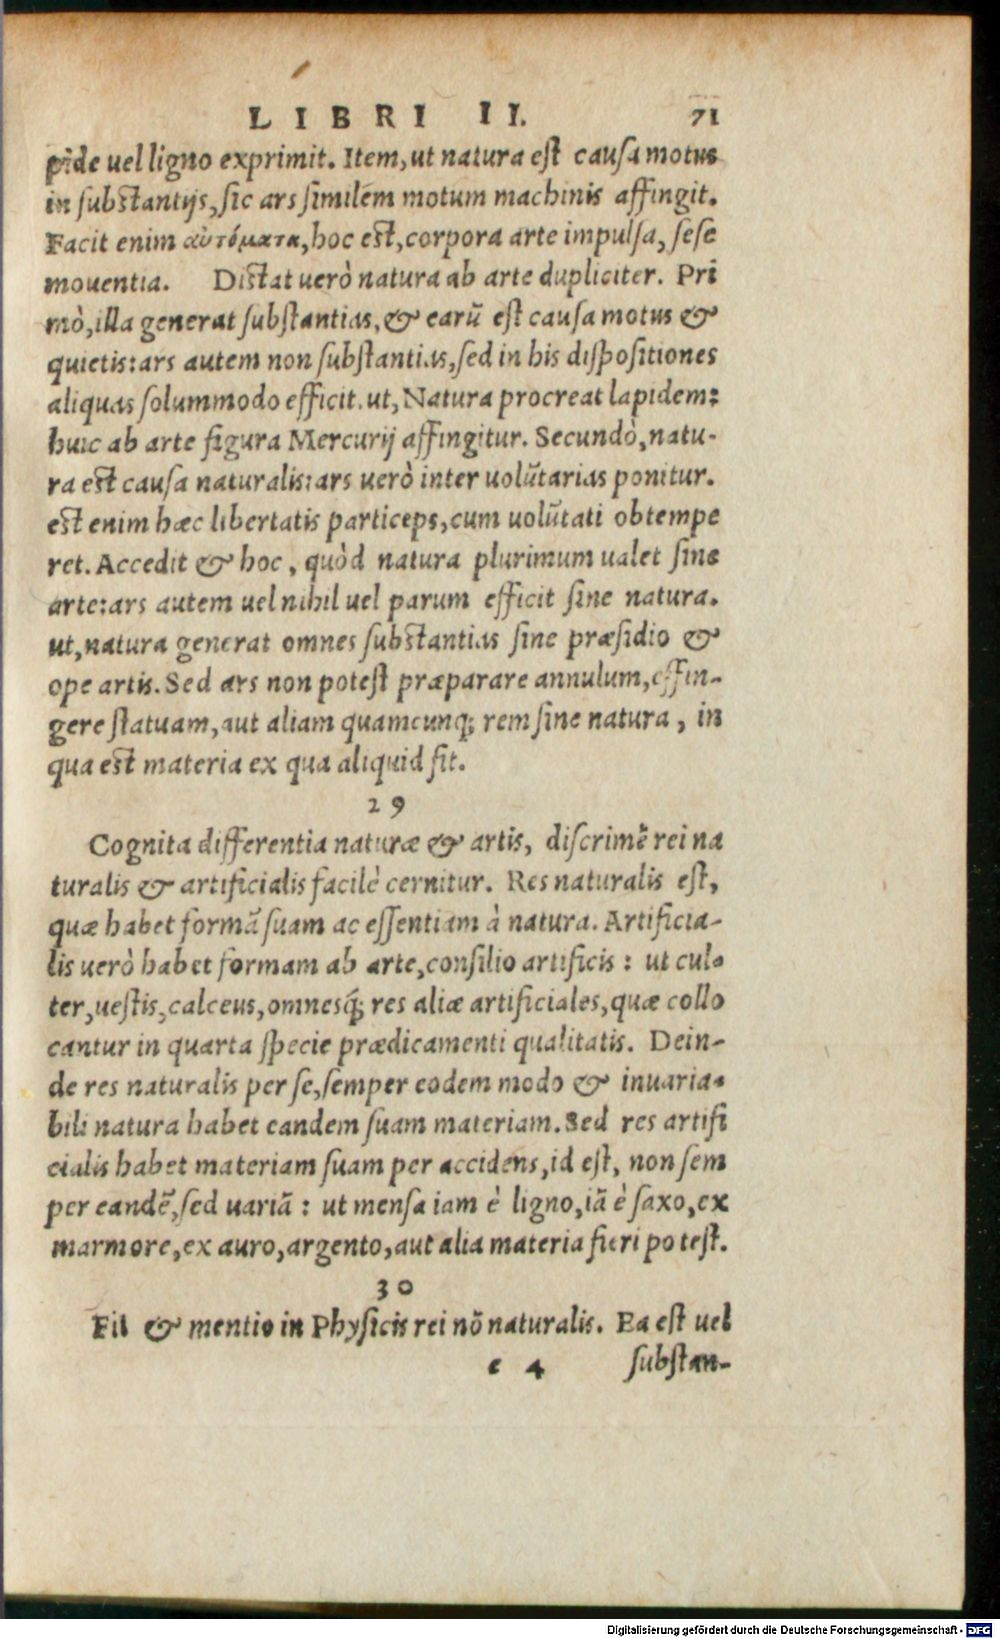 LIBRI II. 71
pide uel ligno exprimit. Item, ut natura est causa motus
in substantijs, sic ars similem motum machinis affingit.
Facit enim αὐτόματα, hoc est, corpora arte impulsa, sese
mouentia. Distat uerò natura ab arte dupliciter. Pri
mò, illa generat substantias, & earū est causa motus &
quietis: ars autem non substantias, sed in his dispositiones
aliquas solummodo efficit. ut, Natura procreat lapidem:
huic ab arte figura Mercurij affingitur. Secundò, natu-
ra est causa naturalis: ars uerò inter uolūtarias ponitur.
est enim hæc libertatis particeps, cum uolūtati obtempe
ret. Accedit & hoc, quòd natura plurimum ualet sine
arte: ars autem uel nihil uel parum efficit sine natura.
ut, natura generat omnes substantias sine præsidio &
ope artis. Sed ars non potest præparare annulum, effin-
gere statuam, aut aliam quamcunq; rem sine natura, in
qua est materia ex qua aliquid fit.
29
Cognita differentia naturæ & artis, discrimē rei na
turalis & artificialis facilè cernitur. Res naturalis est,
quæ habet formā suam ac essentiam à natura. Artificia-
lis uerò habet formam ab arte, consilio artificis: ut cul-
ter, uestis, calceus, omnesq́; res aliæ artificiales, quæ collo
cantur in quarta specie prædicamenti qualitatis. Dein-
de res naturalis per se, semper eodem modo & inuaria-
bili natura habet eandem suam materiam. Sed res artifi
cialis habet materiam suam per accidens, id est, non sem
per eandē, sed uariā: ut mensa iam è ligno, iā è saxo, ex
marmore, ex auro, argento, aut alia materia fieri potest.
30
Fit & mentio in Physicis rei nō naturalis. Ea est uel
e 4 substan-
Digitalisierung gefördert durch die Deutsche Forschungsgemeinschaft - DFG